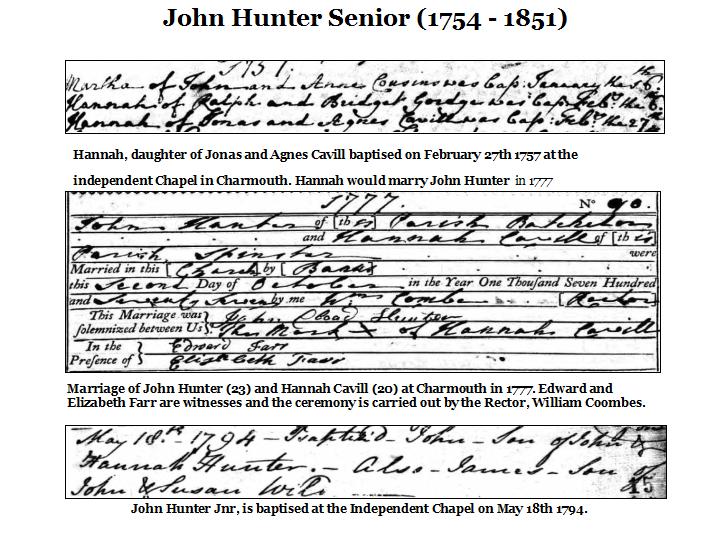 John Hunter Senior (1754 - 1851)
1757.
Martha of John and Anne Cousins was Bap: January the 16th
Hannah of Ralph and Bridget was Bap: Feb: the 6.
Hannah of Jonas and Agnes Cavill was Bap: Feb: the 27th
Hannah, daughter of Jonas and Agnes Cavill baptised on February 27th 1757 at the
independent Chapel in Charmouth. Hannah would marry John Hunter in 1777
1777. No 90.
John Hunter of [this] Parish Batchelor
and Hannah Cavill of [this]
Parish Spinster were
Married in this [Church] by [Banns
this Second Day of October in the Year One Thousand Seven Hundred
and Seventy Seven by me Wm Combe [Rector]
This Marriage was } John Hunter
solemnized between Us } The Mark X of Hannah Cavill
In the } Edward Farr
Presence of } Elizabeth Farr
Marriage of John Hunter (23) and Hannah Cavill (20) at Charmouth in 1777. Edward and
Elizabeth Farr are witnesses and the ceremony is carried out by the Rector, William Coombes.
May 18th - 1794 - Baptis'd - John - Son of John &
Hannah Hunter. - Also - James - Son of
John & Susan 15
John Hunter Jnr, is baptised at the Independent Chapel on May 18th 1794.